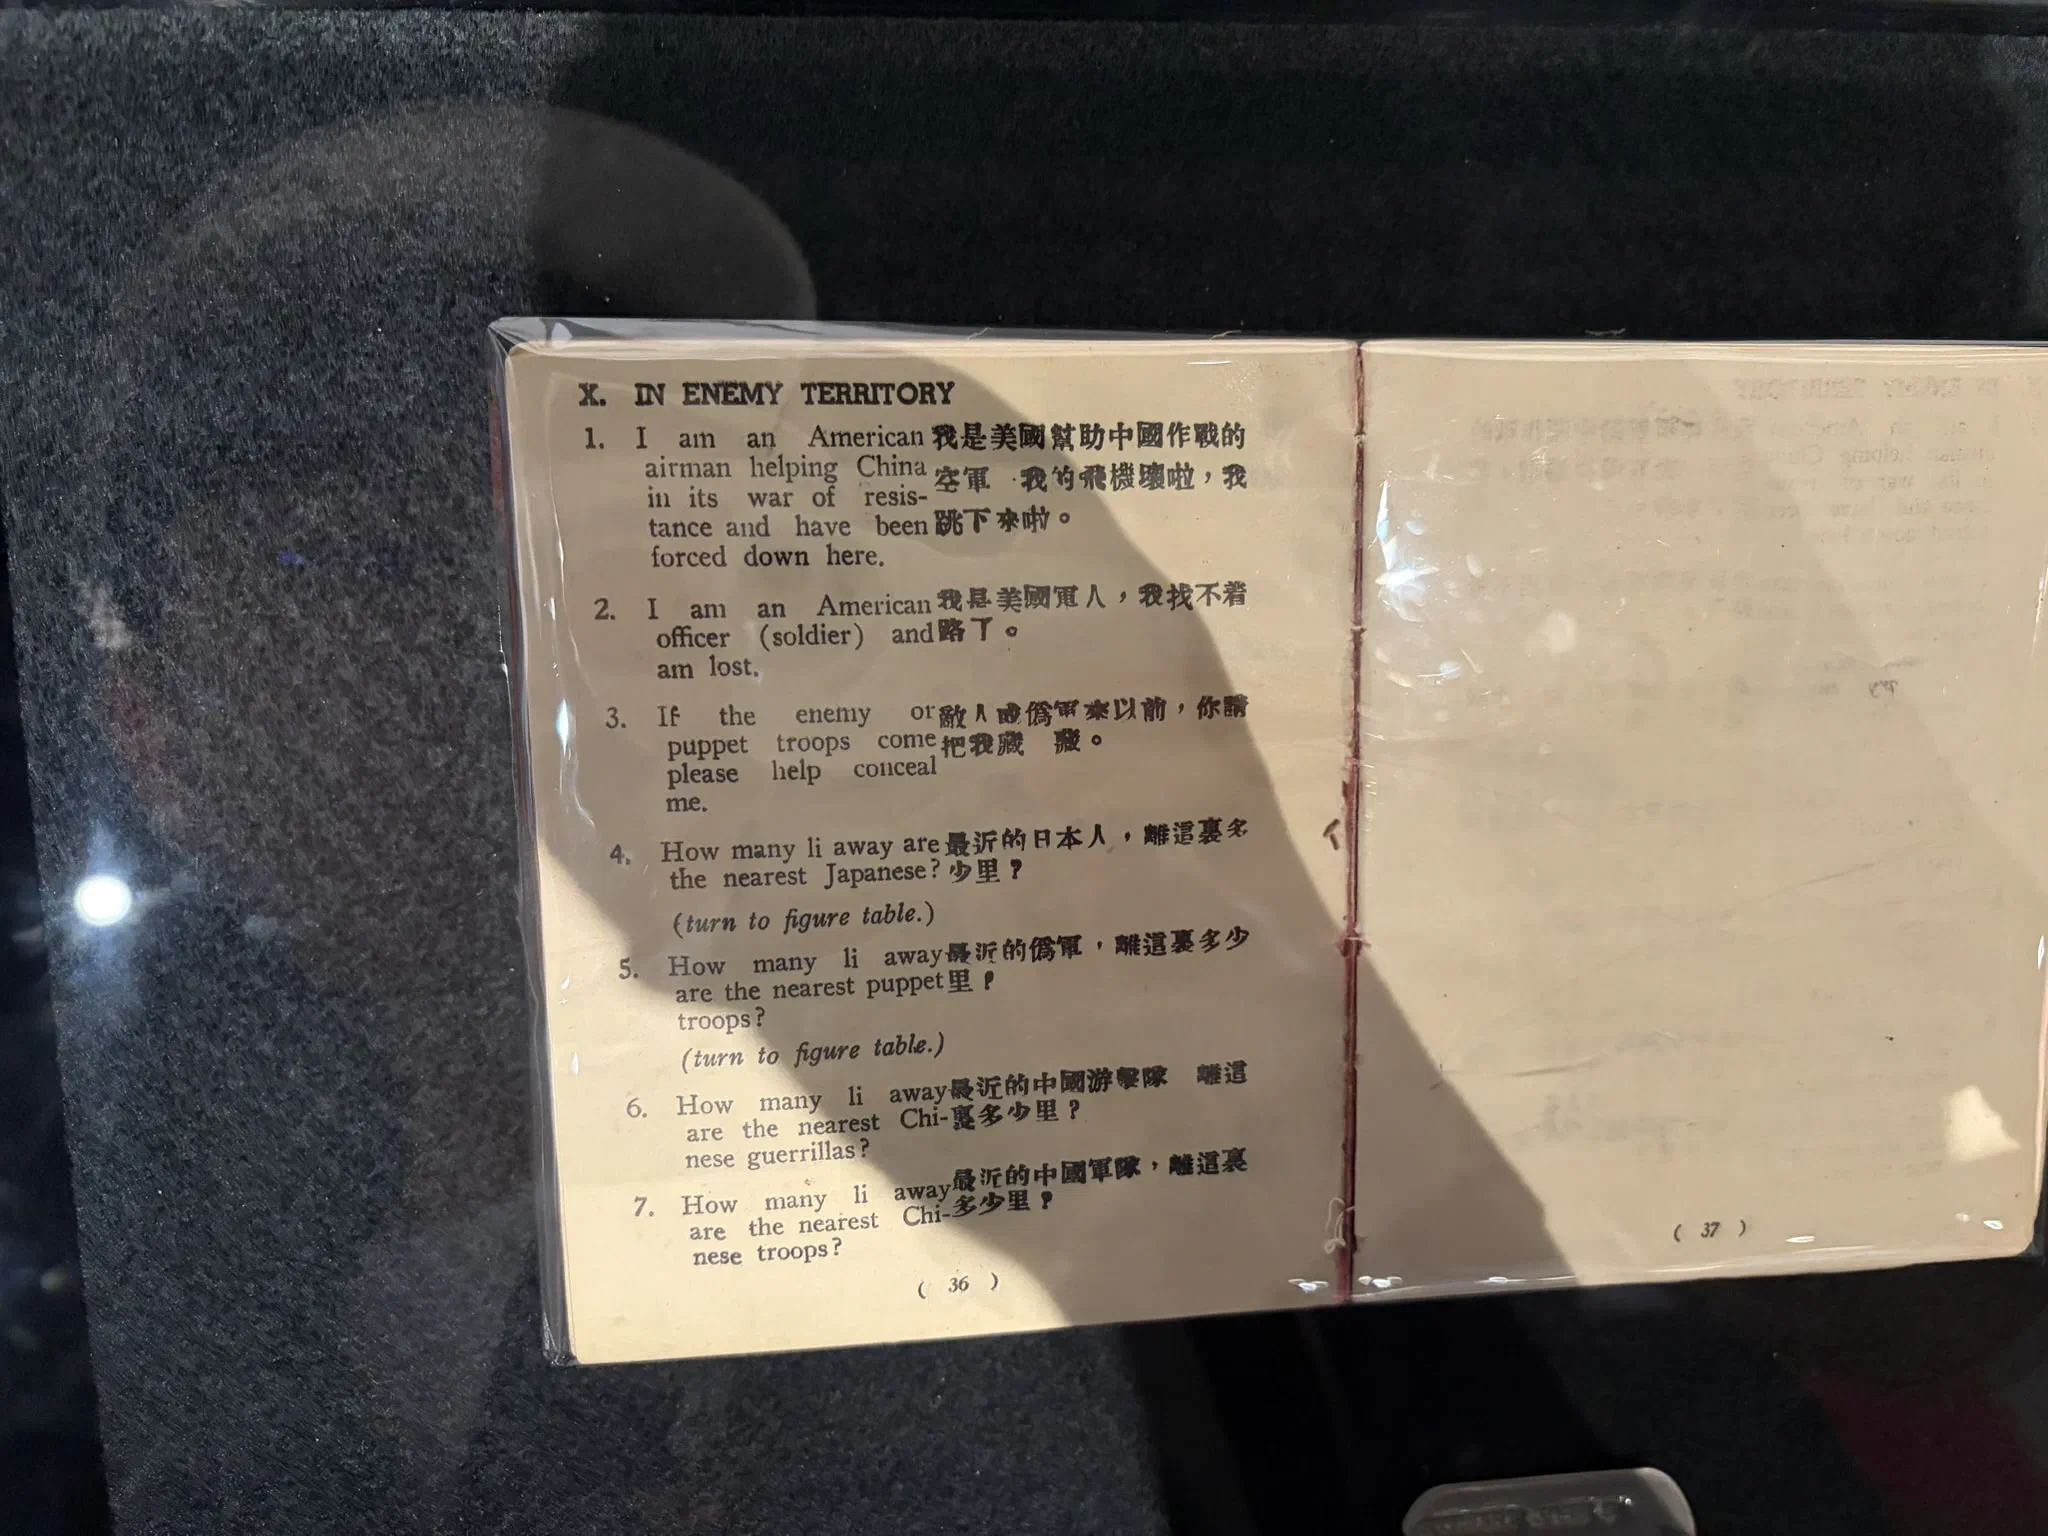 X. IN ENEMY TERRITORY
1. I am an American 我是美國幫助中國作戰的
airman helping China 空軍 我的飛機壞啦，我
in its war of resis-
tance and have been 跳下來啦。
forced down here.
2. I am an American 我是美國軍人，我找不着
officer (soldier) and 路了。
am lost.
3. If the enemy or 敵人或僞軍來以前，你請
puppet troops come 把我藏 藏。
please help conceal
me.
4. How many li away are 最近的日本人，離這裏多
the nearest Japanese? 少里？
(turn to figure table.)
5. How many li away 最近的僞軍，離這裏多少
are the nearest puppet 里？
troops?
(turn to figure table.)
6. How many li away 最近的中國游擊隊 離這
are the nearest Chi- 裏多少里？
nese guerrillas?
7. How many li away 最近的中國軍隊，離這裏
are the nearest Chi- 多少里？
nese troops?
( 36 )
( 37 )